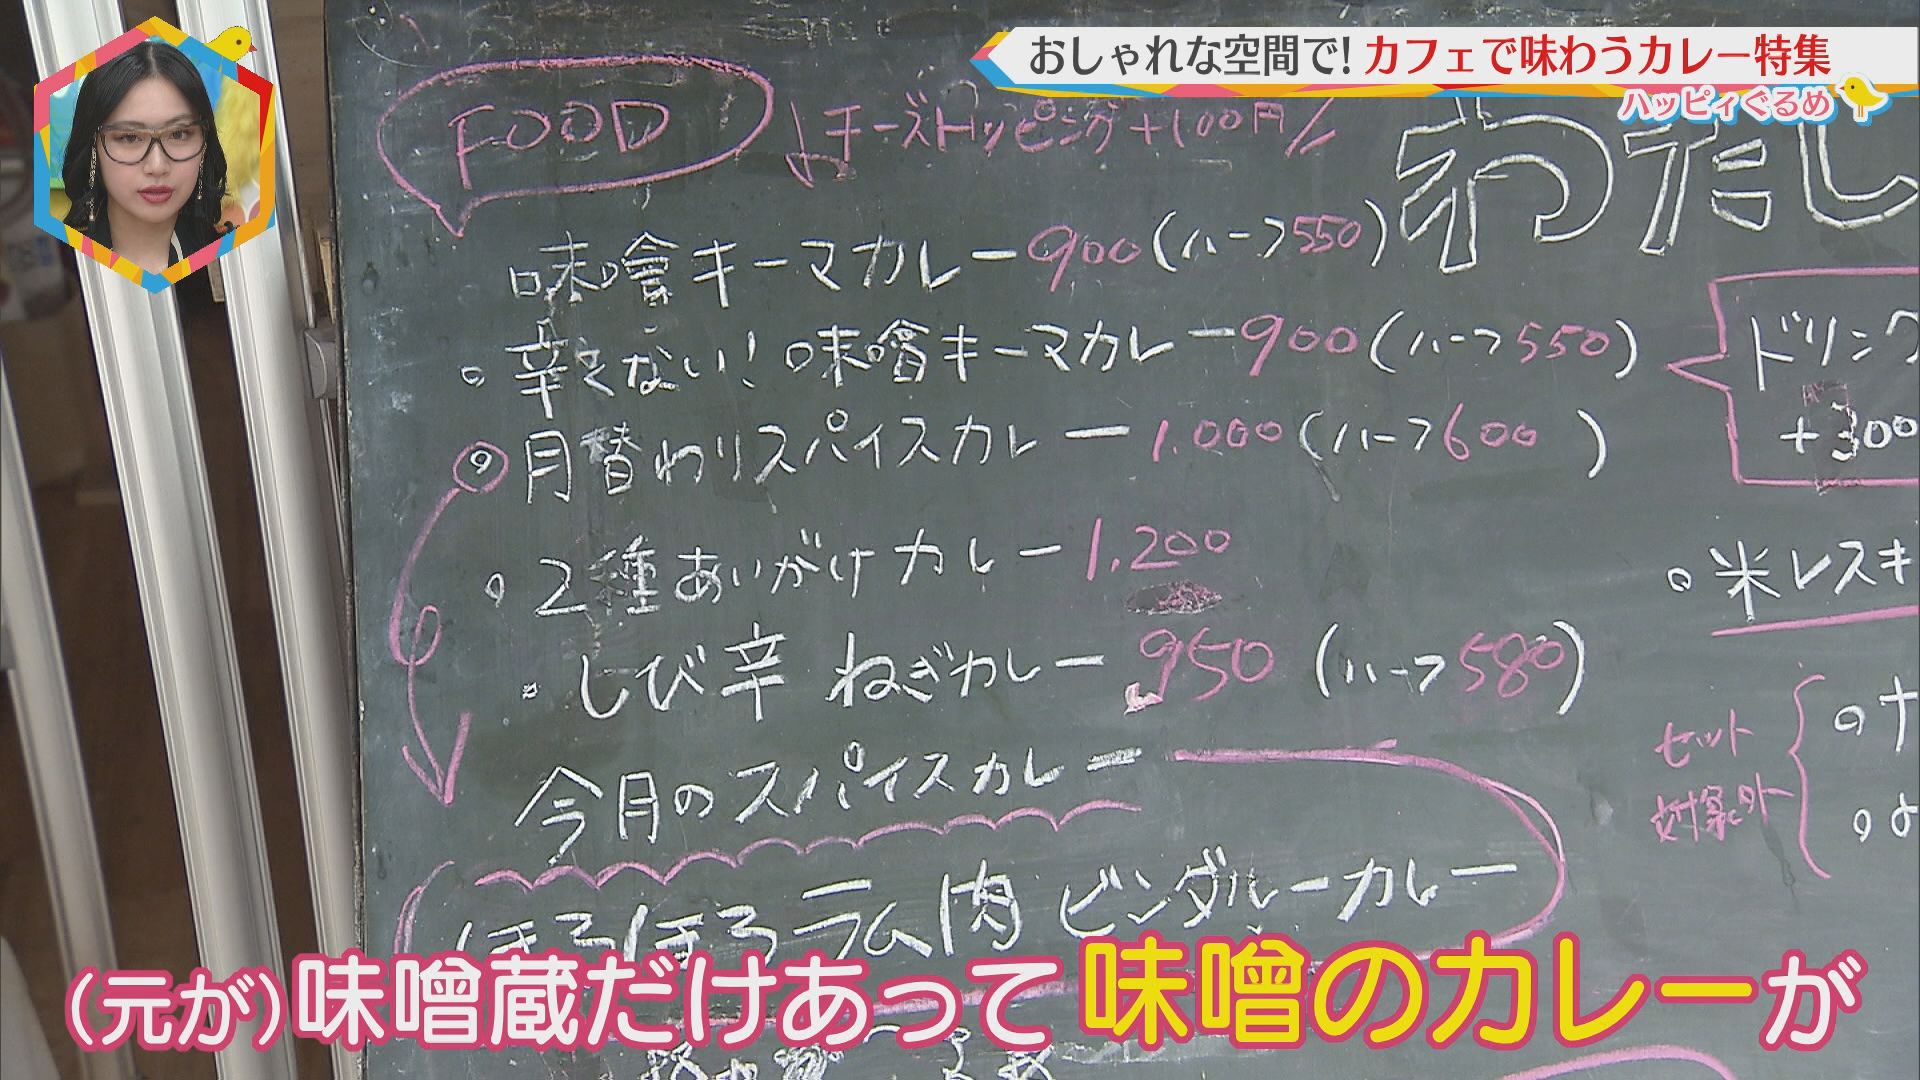 おしゃれな空間で!カフェで味わうカレー特集
ハッピィぐるめ
FOOD
チーズトッピング+100円
わたし
味噌キーマカレー900(ハーフ550)
辛くない!味噌キーマカレー900(ハーフ550)
月替わりスパイスカレー1.000(ハーフ600)
2種あいがけカレー1.200
しび辛ねぎカレー950(ハーフ580)
今月のスパイスカレー
ほろほろラム肉ビンダルーカレー
ドリンク
+300
米レスキ
セット
対象外
(元が)味噌蔵だけあって味噌のカレーが